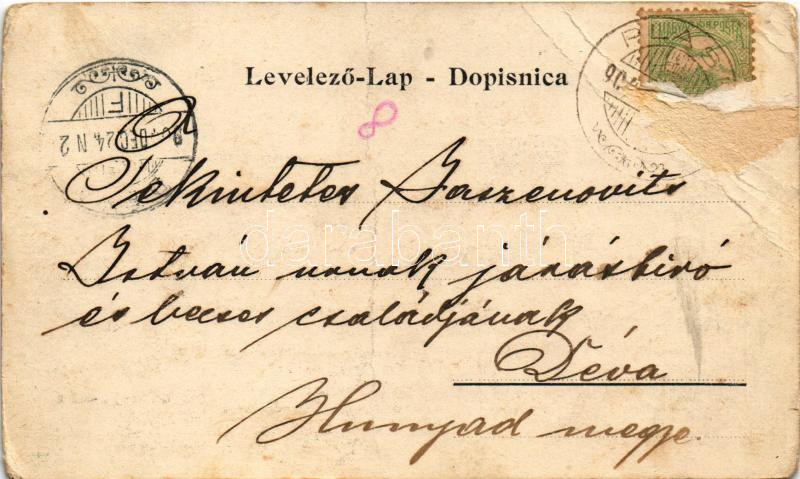 MAGYAR KIR. POSTA
Levelező-Lap - Dopisnica
8
DEC 24 N 2
F
A
Tekintetes Jaszenovits
István urnak járásbiró
és becses családjának
Déva
Hunyad megye.
darabanth